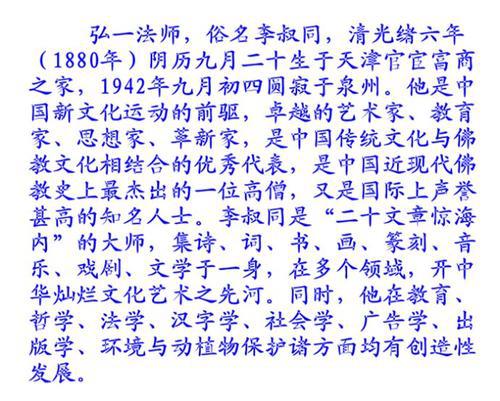 弘一法师，俗名李叔同，清光绪六年
（1880年）阴历九月二十生于天津官宦富商
之家，1942年九月初四圆寂于泉州。他是中
国新文化运动的前驱，卓越的艺术家、教育
家、思想家、革新家，是中国传统文化与佛
教文化相结合的优秀代表，是中国近现代佛
教史上最杰出的一位高僧，又是国际上声誉
甚高的知名人士。李叔同是“二十文章惊海
内”的大师，集诗、词、书、画、篆刻、音
乐、戏剧、文学于一身，在多个领域，开中
华灿烂文化艺术之先河。同时，他在教育、
哲学、法学、汉字学、社会学、广告学、出
版学、环境与动植物保护诸方面均有创造性
发展。